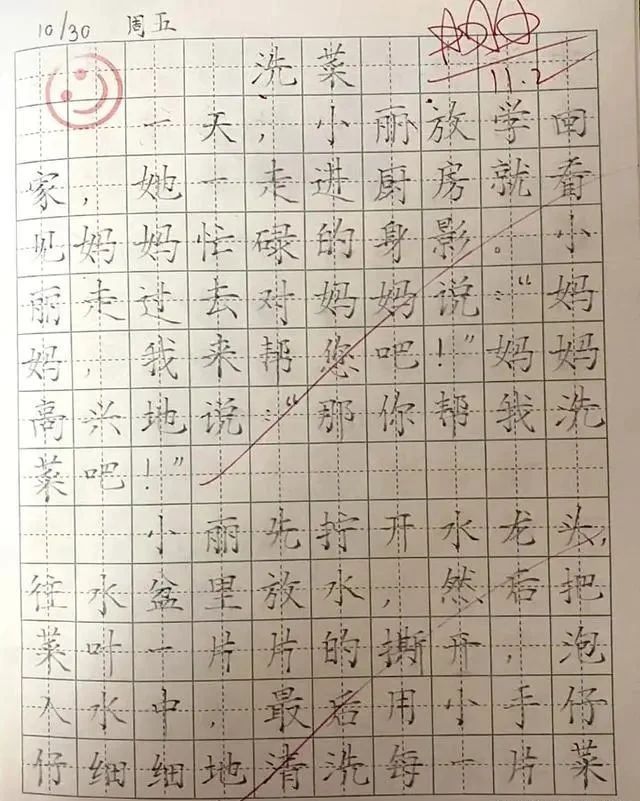 10/30 周五
洗菜
11.2
一天，小丽放学回
家，她一走进厨房就看
见妈妈忙碌的身影。小
丽走过去对妈妈说：“妈
妈，我来帮您吧！”妈妈
高兴地说：“那你帮我洗
菜吧！”
小丽先拧开水龙头，
往水盆里放水，然后把
菜叶一片片的撕开，泡
入水中，最后用小手仔
仔细细地清洗每一片菜